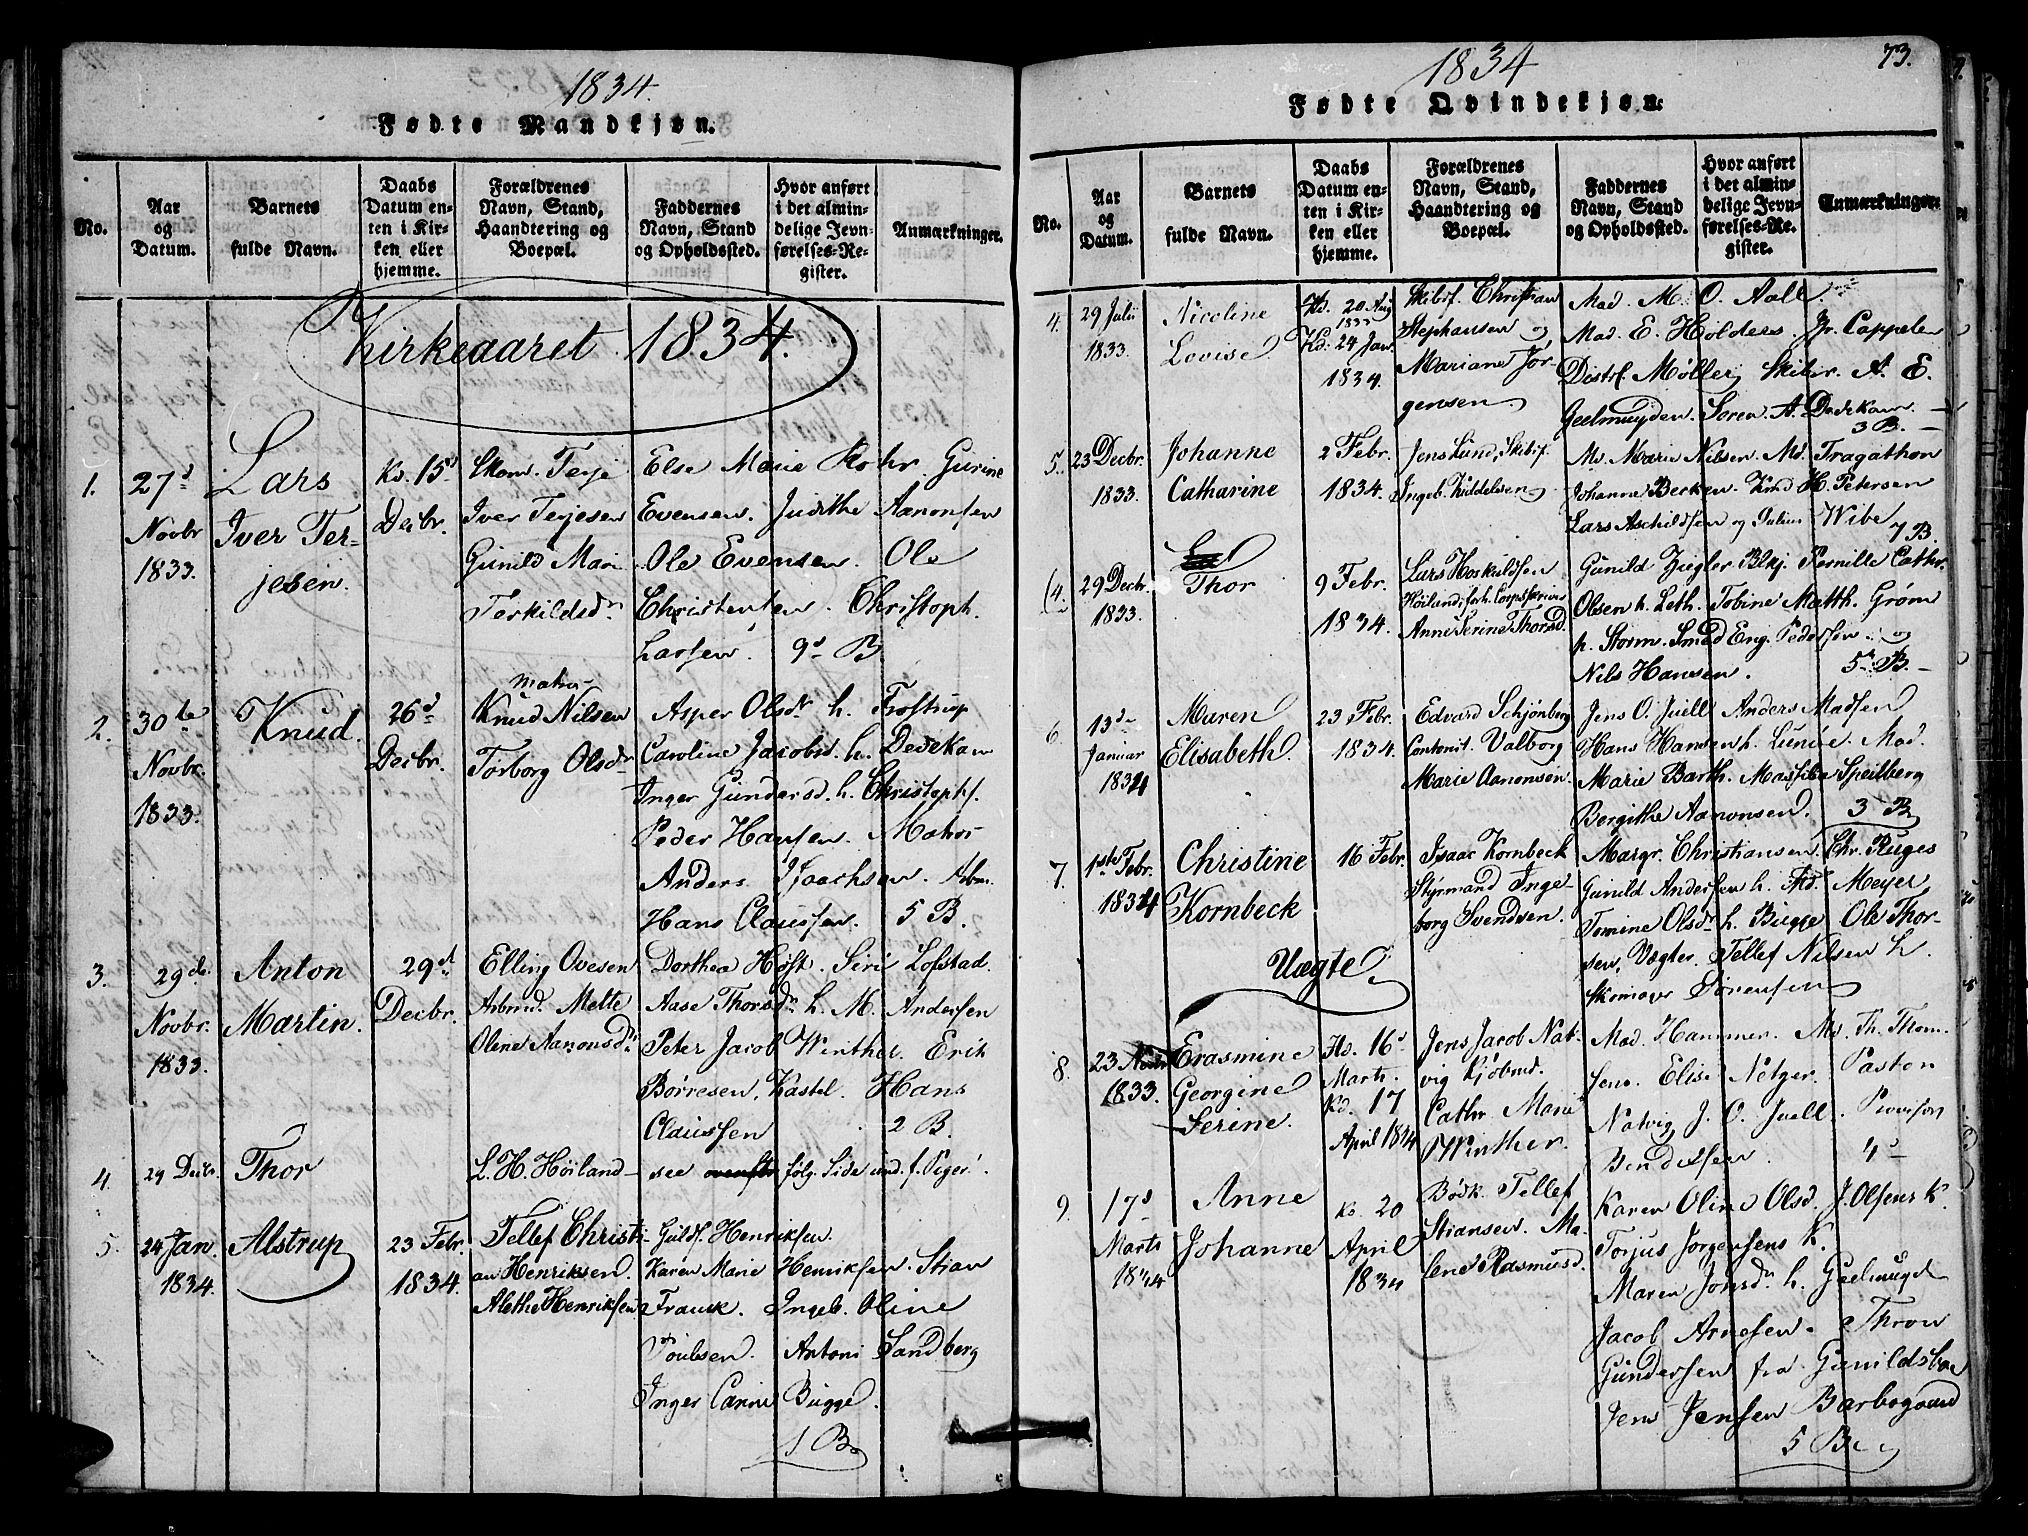 1834.
Fødte Mandkjøn.
No.
Aar
og
Datum.
Barnets
fulde Navn.
Daabs
Datum en-
ten i Kir-
ken eller
hjemme.
Forældrenes
Navn, Stand,
Haandtering og
Boepæl.
Faddernes
Navn, Stand
og Opholdssted.
Hvor anført
i det almin-
delige Jevn-
førelses-Re-
gister.
Anmærkninger.
Kirkeaaret 1834.
1.
27d
Novbr
1833.
Lars
Iver Ter-
jesen.
Kd. 15d
Decbr.
Skom. Terje
Iver Terjesen
Gunild Mari
Terkildsdn
Else Marie Rohr. Gurine
Evensen. Judithe Aanonsen
Ole Evensen. Ole
Christensen. Christoph.
Larsen. 9d B
2.
30te
Novbr.
1833.
Knud.
26d
Decbr.
Matros
Knud Nilsen
Torborg Olsdn
Asper Olsdn h. Frostrup
Caroline Jacobsd. h. Dedekam
Inger Gundersd. h. Christophs.
Peder Hansen. Matros
Anders Isaachsen. Arbm.
Hans Claussen. 5 B.
3.
29de
Novbr.
1833.
Anton
Martin.
29d
Decbr.
Elling Ovesen
Arbmd. Mette
Olene Aanonsdn
Dorthea Høst. Siri Lofstad.
Aase Thorsdn h. M. Andersen
Peter Jacob Winther. Erik
Børresen, Kastel. Hans
Claussen 2 B.
4.
29 Decbr.
Thor
L. H. Høiland
see ovenfor følg. Side und. f. Piger.
5.
24 Jan.
1834.
Alstrup
23 Febr.
1834.
Tellef Christi-
an Henriksen.
Alethe Henriksen
Guldf. Henriksen.
Karen Marie Henriksen. Stian
Franck. Ingeb. Oline
Poulsen. Antoni Sandberg
Inger Carine Bugge.
1 B.
1834
73.
Fødte Qvindekjøn.
No.
Aar
og
Datum.
Barnets
fulde Navn.
Daabs
Datum en-
ten i Kir-
ken eller
hjemme.
Forældrenes
Navn, Stand,
Haandtering og
Boepæl.
Faddernes
Navn, Stand
og Opholdsted.
Hvor anført
i det almin-
delige Jevn-
førelses-Re-
gister.
Anmærkninger.
4.
29 Julii
1833.
Nicoline
Lovise
Hd. 20 Aug
1833
Kd. 24 Jan.
1834.
Skibsf. Christian
Stephansen og
Mariane Jør-
gensen.
Mad. M. O. Aall.
Mad. E. Holders. Jr. Cappelen
Distrl. Møller, Skibsr. A. E.
Geelmuyden. Søren A. Dedekam.
3 B.
5.
23 Decbr.
1833.
Johanne
Catharine
2 Febr.
1834.
Jens Lund, Skibsf.
Ingeb. Kiddelsen
Md. Marie Nilsen. Md. Tragathon
Johanne Becken. Knud H. Petersen
Lars Aschildsen og Julius Wibe
7 B.
(4.
29 Decbr.
1833.
Thor
9 Febr.
1834.
Lars Hoskuldsen
Høiland, forh. Corpsskriver
Anne Serine Thorsd.
Gunild Ziegler Blkj. Pernille Cathr.
Olsen h. Leth. Tobine Matth. Grøm
h. Storm. Smed Eng. Pedersen og
Nils Hansen. 5 B.
6.
13de
Januar
1834
Maren
Elisabeth.
23 Febr.
1834.
Edvard Schjønberg
Contorist. Valborg
Marie Aanonsen.
Jens O. Juell Anders Madsen
Hans Hansen h. Lunde. Mad.
Marie Barth. Massibe Speilberg
Bergithe Aanonsen. 3 B.
7.
1ste Febr.
1834
Christine
Kornbeck
16 Febr.
Isaac Kornbeck
Styrmand Inge-
borg Svendsen.
Margr. Christiansen. Chr. Ruges
Gunild Andersen h. Fhd. Meyer,
Tomine Olsdn h. Bugge Ole Thor-
sen, Vægter. Tellef Nilsen h.
Skomager Sørensen
Uægte
8.
23
1833.
Erasmine
Georgine
Serine.
Hd. 16d
Marts.
Kd. 17
April 1834
Jens Jacob Nat-
vig Kjøbmd.
Cathr. Marie
Winther.
Mad. Hammer. Md. Th. Thom-
sens. Elise Netzer. Pastor
Natvig, J. O. Juell. Provisor
Bendixsen. 4
9.
17d
Marts
1834
Anne
Johanne
Kd. 20
April
1834
Bødk. Tellef
Stiansen. Ma-
lene Rasmusd.
Karen Oline Olsd. J. Olsens K.
Torjus Jørgensens K.
Maren Jonsdn h. Geelmuyd
Jacob Arnesen. Thron
Gundersen fra Gunildsboe
Jens Jensen Barbogaard
5 B.